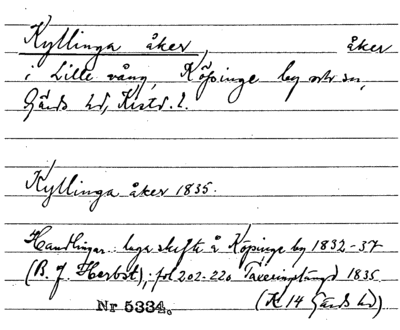 Kyllinga åker, åker
i Lille vång, Köpinge by och sn,
Gärds hd, Kristi. l.
Kyllinga åker 1835.
Handlingar laga skifte å Köpinge by 1832-37
(B. J. Herbst), fol 202-220 Taxeringslängd 1835
(K 14 Gärds hd)
Nr 5334.